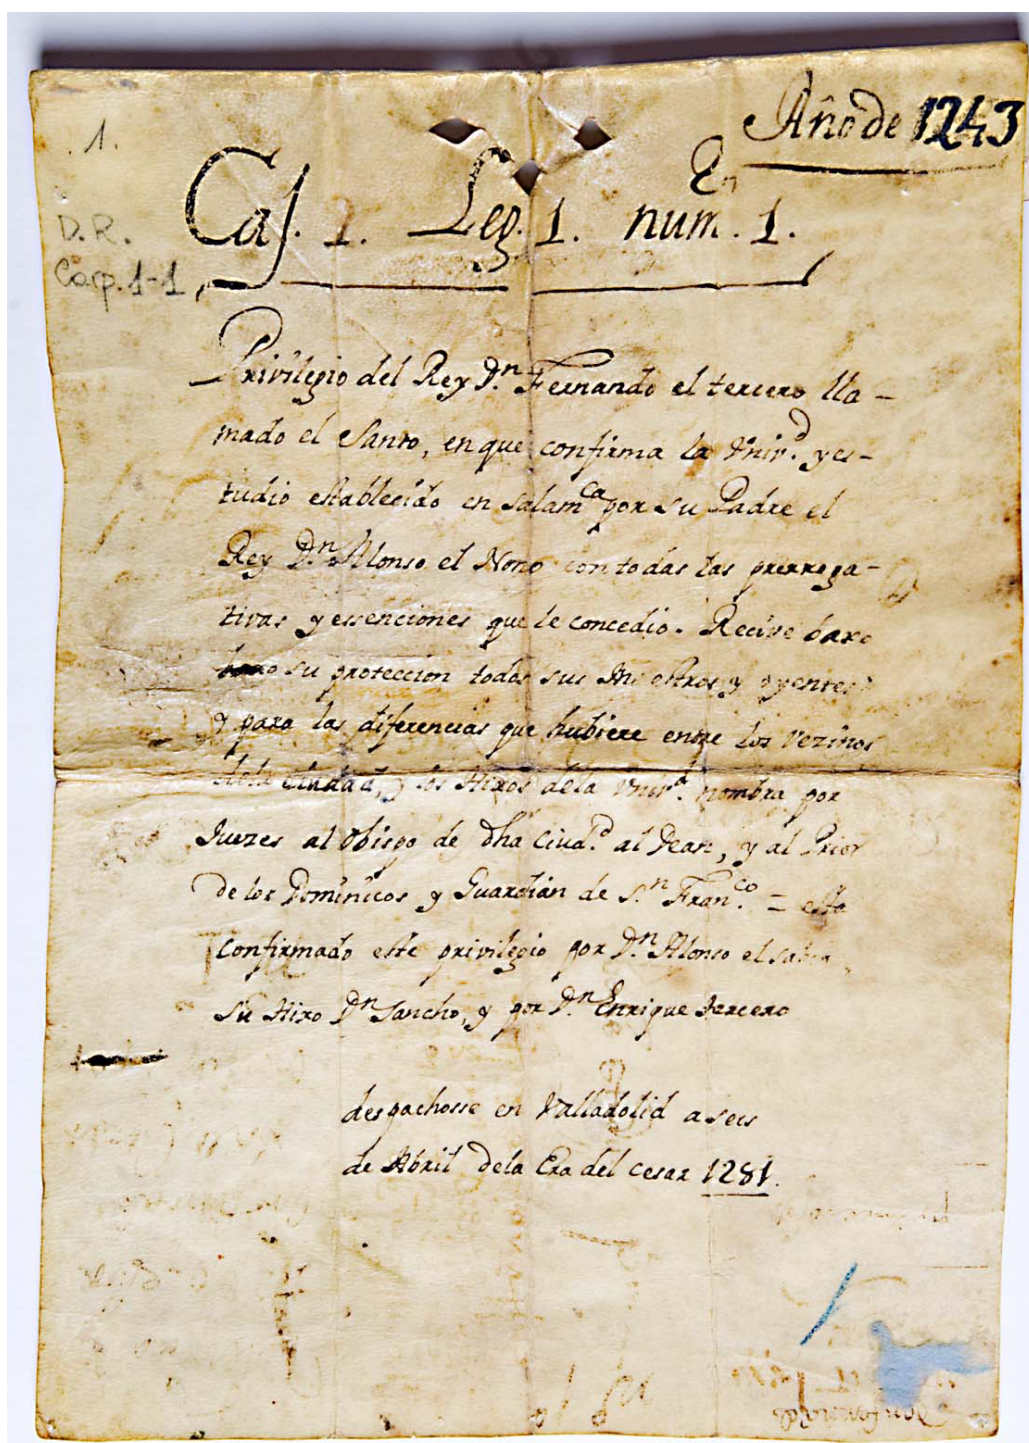 Año de 1243
.1.
En
Caj. 1. Leg. 1. num. 1.
D.R.
Carp. 1-1
Privilegio del Rey D.n Fernando el tercero lla-
mado el Santo, en que confirma la Vnir.d y es-
tudio establecido en Salam.ca por su Padre el
Rey D.n Alonso el Nono con todas las prerroga-
tivas y essenciones que le concedio. Recive baxo
su proteccion todos sus Mâestros y oyentes
y para las diferencias que hubiere entre los vezinos
dela Ciudad, y los Hixos dela Vnir.d nombra por
Juezes al Obispo de dha Ciud.d al Dean, y al Prior
de los Dominicos y Guardian de S.n Fran.co = esta
confirmado este privilegio por D.n Alonso el sabio,
su Hixo D.n Sancho, y por D.n Enrique tercero
despachosse en Valladolid a seis
de Abril dela Era del cesar 1281.